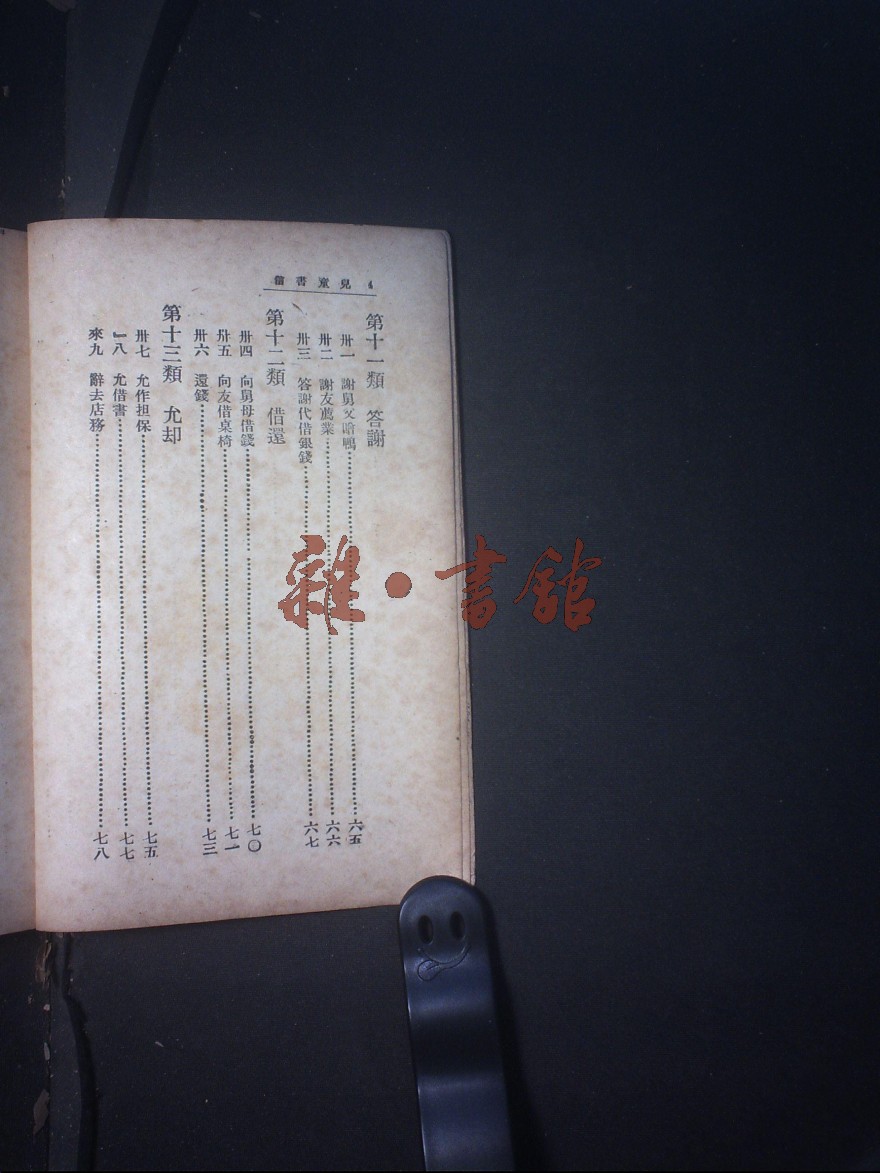 4 兒童書信
第十一類 答謝
卅一 謝舅父贈鴨……六五
卅二 謝友薦業……六六
卅三 答謝代借銀錢……六七
第十二類 借還
卅四 向舅母借錢……七〇
卅五 向友借桌椅……七一
卅六 還錢……七三
第十三類 允却
卅七 允作担保……七五
一八 允借書……七七
來九 辭去店務……七八
雜·書館